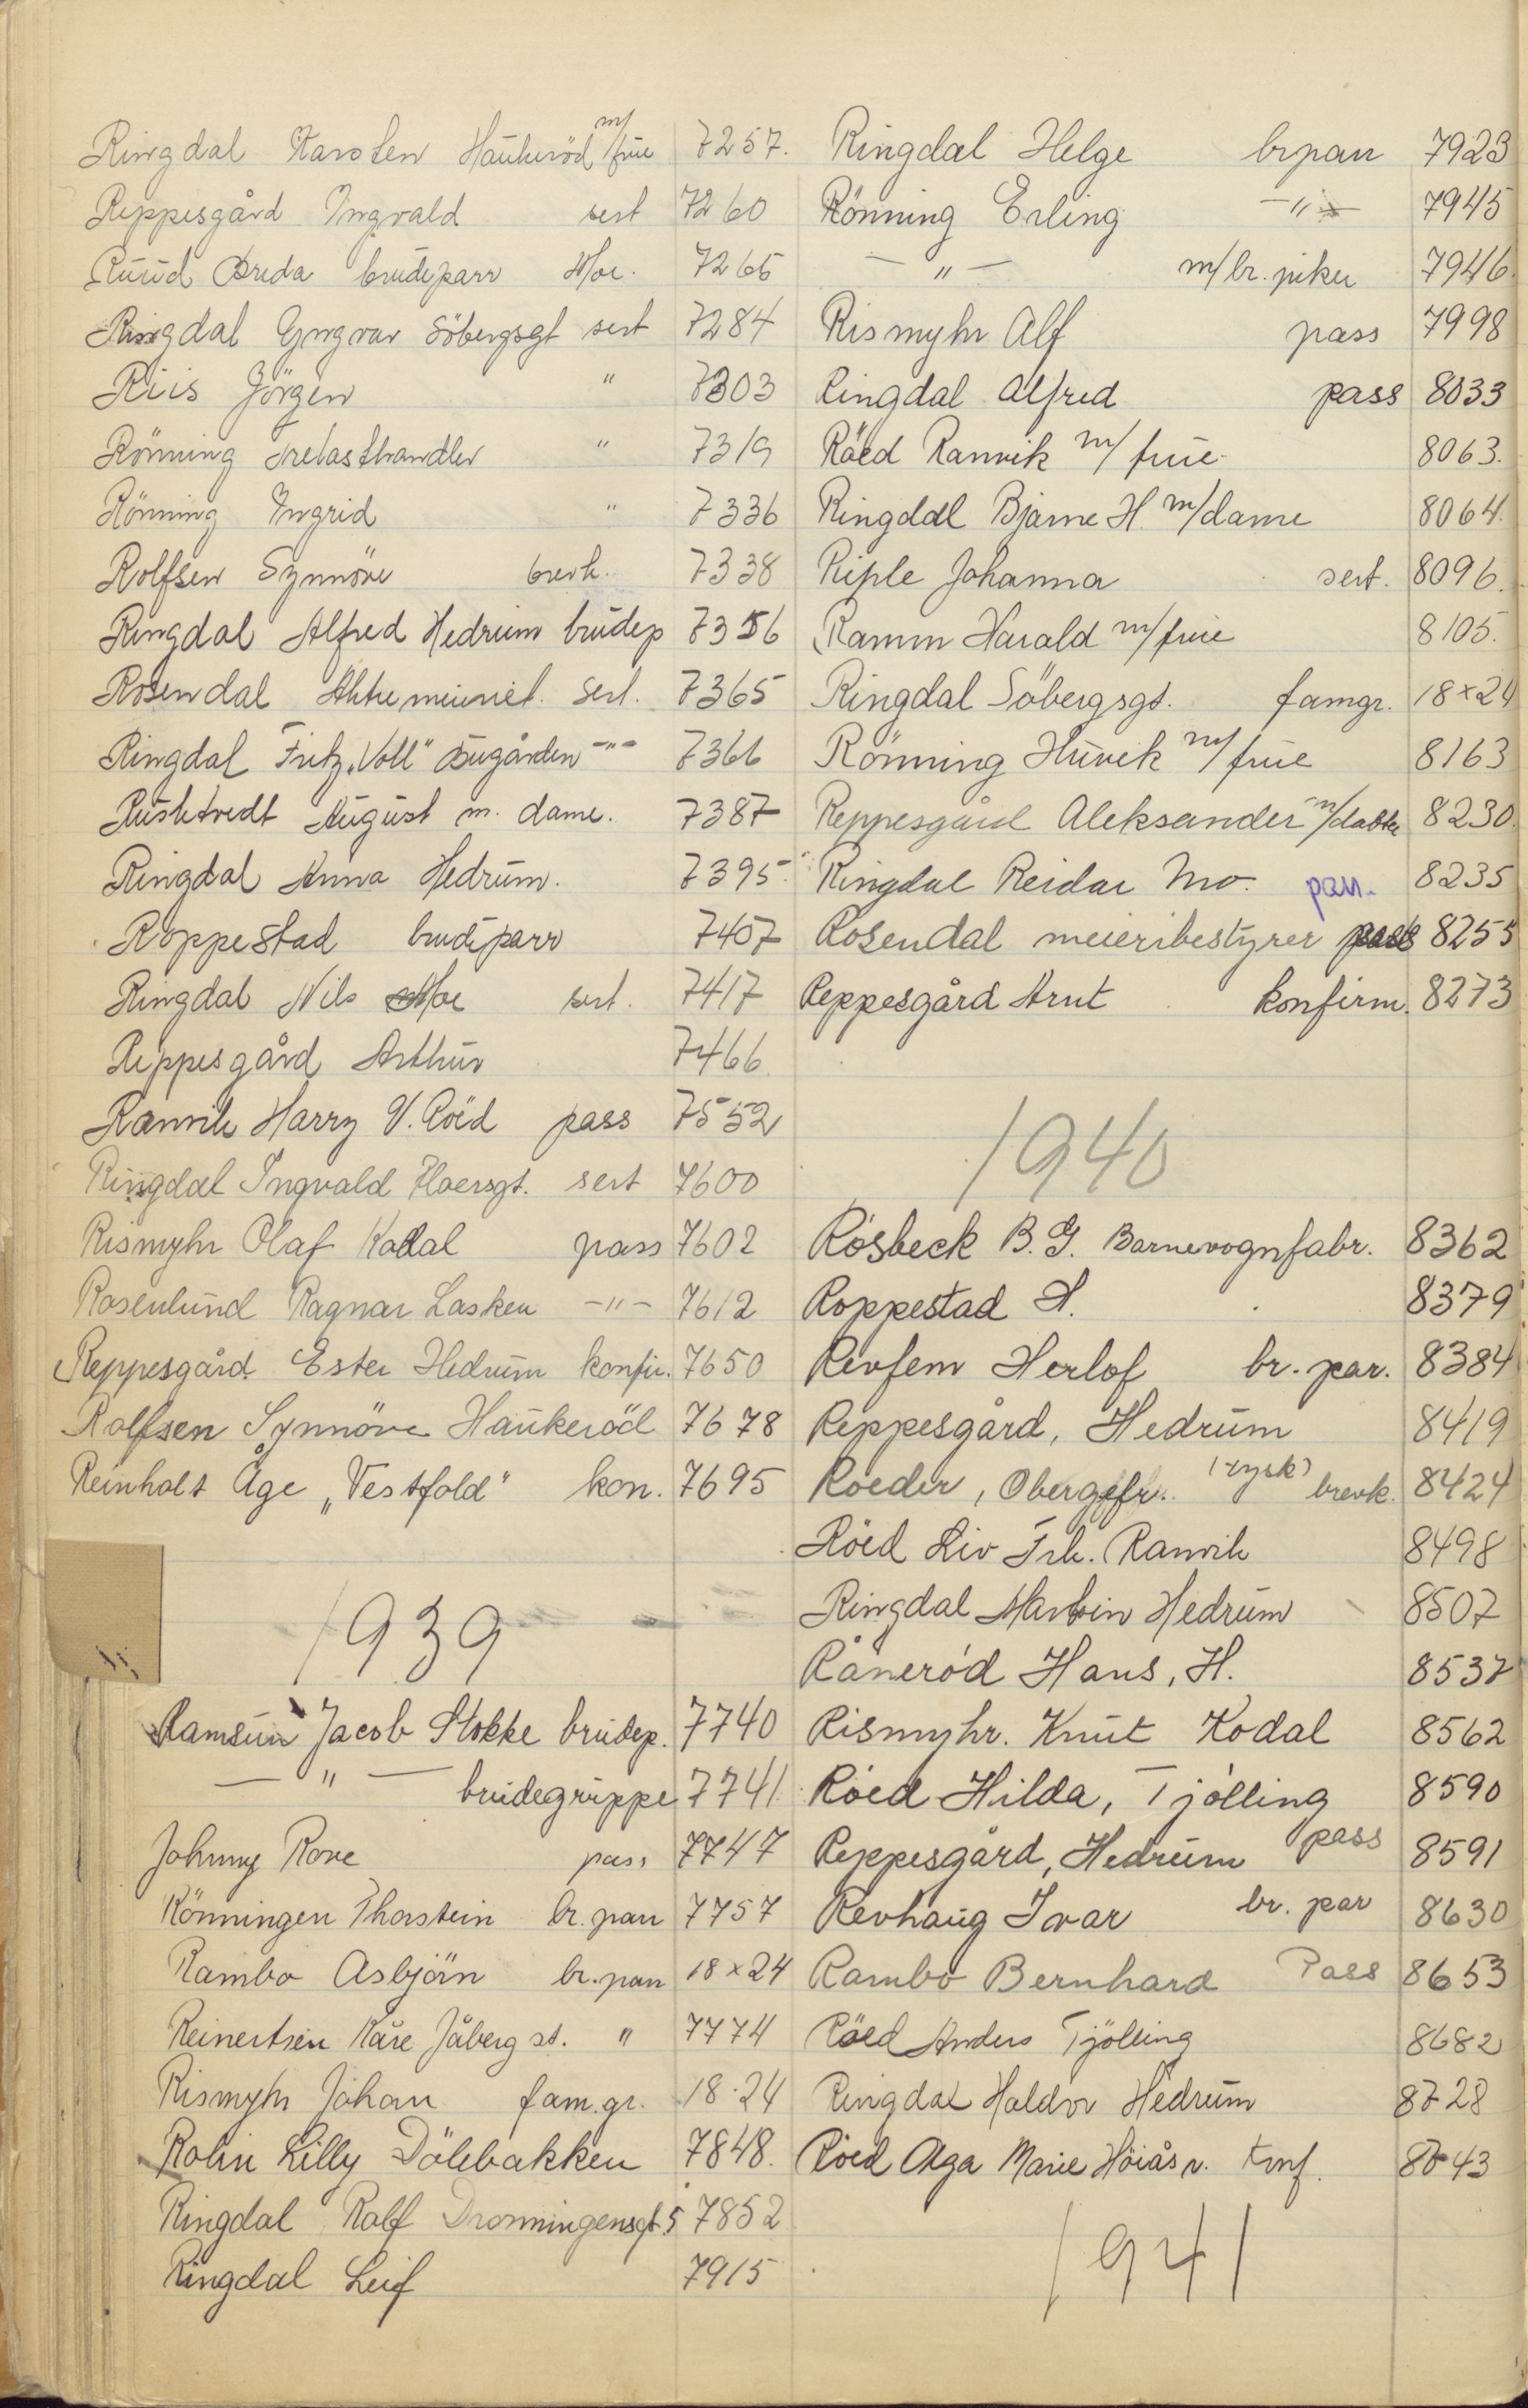 Ringdal Karsten Haukeröd m/frue 7257.
Reppesgård Ingvald sert 7260
Ruud Breda brudeparr Moe. 7265
Ringdal Yngvar Söbergsgt sert 7284
Riis Jörgen " 7303
Rönning Trelasthandler " 7319
Rönning Ingrid " 7336
Rolfsen Synnöve brevk. 7338
Ringdal Alfred Hedrum brudep 7356
Rosendal Aktiemeieriet. Sert. 7365
Ringdal Fritz "Voll" Bugården -"- 7366
August m. dame. 7387
Ringdal Anna Hedrum. 7395.
Roppestad brudeparr 7407
Ringdal Nils Moe sert. 7417
Reppesgård Arthur 7466
Ranvik Harry V. Röed pass 7552
Ringdal Ingvald Floersgt. sert 7600
Rismyhr Olaf Kodal pass 7602
Rosenlund Ragnar Lasken -"- 7612
Reppesgård. Ester Hedrum konfir. 7650
Rolfsen Synnöve Haukeröd 7678
Reinholt Åge „Vestfold" kon. 7695
1939
Ramsum Jacob Stokke brudep. 7740
— " — brudegruppe 7741
Johnny Rove pass 7747
Rönningen Thorstein br.parr 7757
Rambo Asbjörn br.parr 18×24
Reinertsen Kåre Jåberg st. " 7774
Rismyhr Johan fam.gr. 18·24
Rolin Lilly Dölebakken 7848.
Ringdal Ralf Dronningensgt. 5 7852
Ringdal Leif 7915
Ringdal Helge brparr 7923
Rönning Erling -"- 7945
— " — m/br.piker 7946.
Rismyhr Alf pass 7998
Ringdal Alfred pass 8033
Röed Ranvik m/frue 8063.
Ringdal Bjarne H. m/dame 8064.
Riple Johanna sert. 8096.
Ramm Harald m/frue 8105.
Ringdal Söbergsgt. famgr. 18×24
Rönning Huvik m/frue 8163
Reppesgård Aleksander m/datter 8230.
Ringdal Reidar Mo. pass. 8235
Rosendal meieribestyrer pass 8255
Reppesgård Arnt konfirm. 8273
1940
Rösbeck B.G. Barnevognfabr. 8362
Roppestad H. 8379
Revfem Herlof br. par. 8384
Reppesgård, Hedrum 8419
Roeder, Obergefr. (tysk) brevk. 8424
Röed Liv Frk. Ranvik 8498
Ringdal Martin Hedrum 8507
Råneröd Hans, H. 8537
Rismyhr. Knut Kodal 8562
Röed Hilda, Tjölling 8590
Reppesgård, Hedrum pass 8591
Revhaug Ivar br. par 8630
Rambo Bernhard Pass 8653
Röed Anders Tjölling 8682
Ringdal Haldor Hedrum 8728
Röed Aga Marie Höiås v. konf. 8743
1941